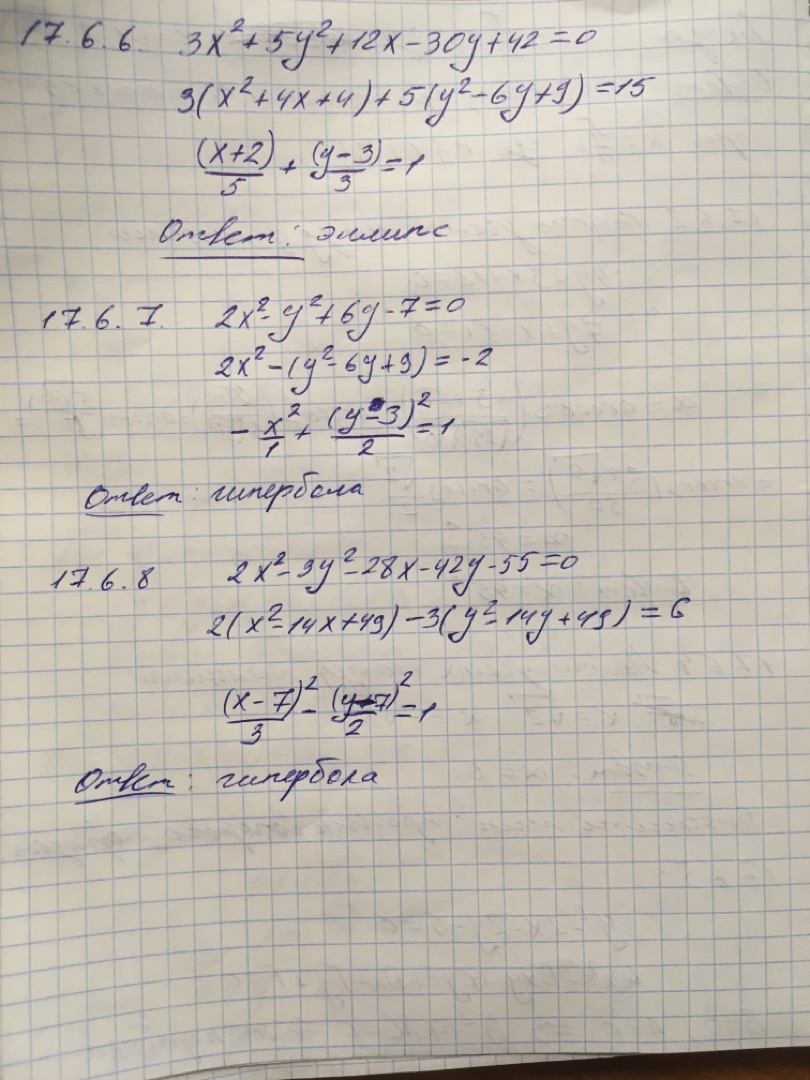 17.6.6. 3x²+5y²+12x-30y+42=0
3(x²+4x+4)+5(y²-6y+9)=15
(x+2)/5 + (y-3)/3 = 1
Ответ: эллипс
17.6.7. 2x²-y²+6y-7=0
2x²-(y²-6y+9)=-2
- x²/1 + (y-3)²/2 = 1
Ответ: гипербола
17.6.8 2x²-3y²-28x-42y-55=0
2(x²-14x+49)-3(y²-14y+49)=6
(x-7)²/3 - (y+7)²/2 = 1
Ответ: гипербола